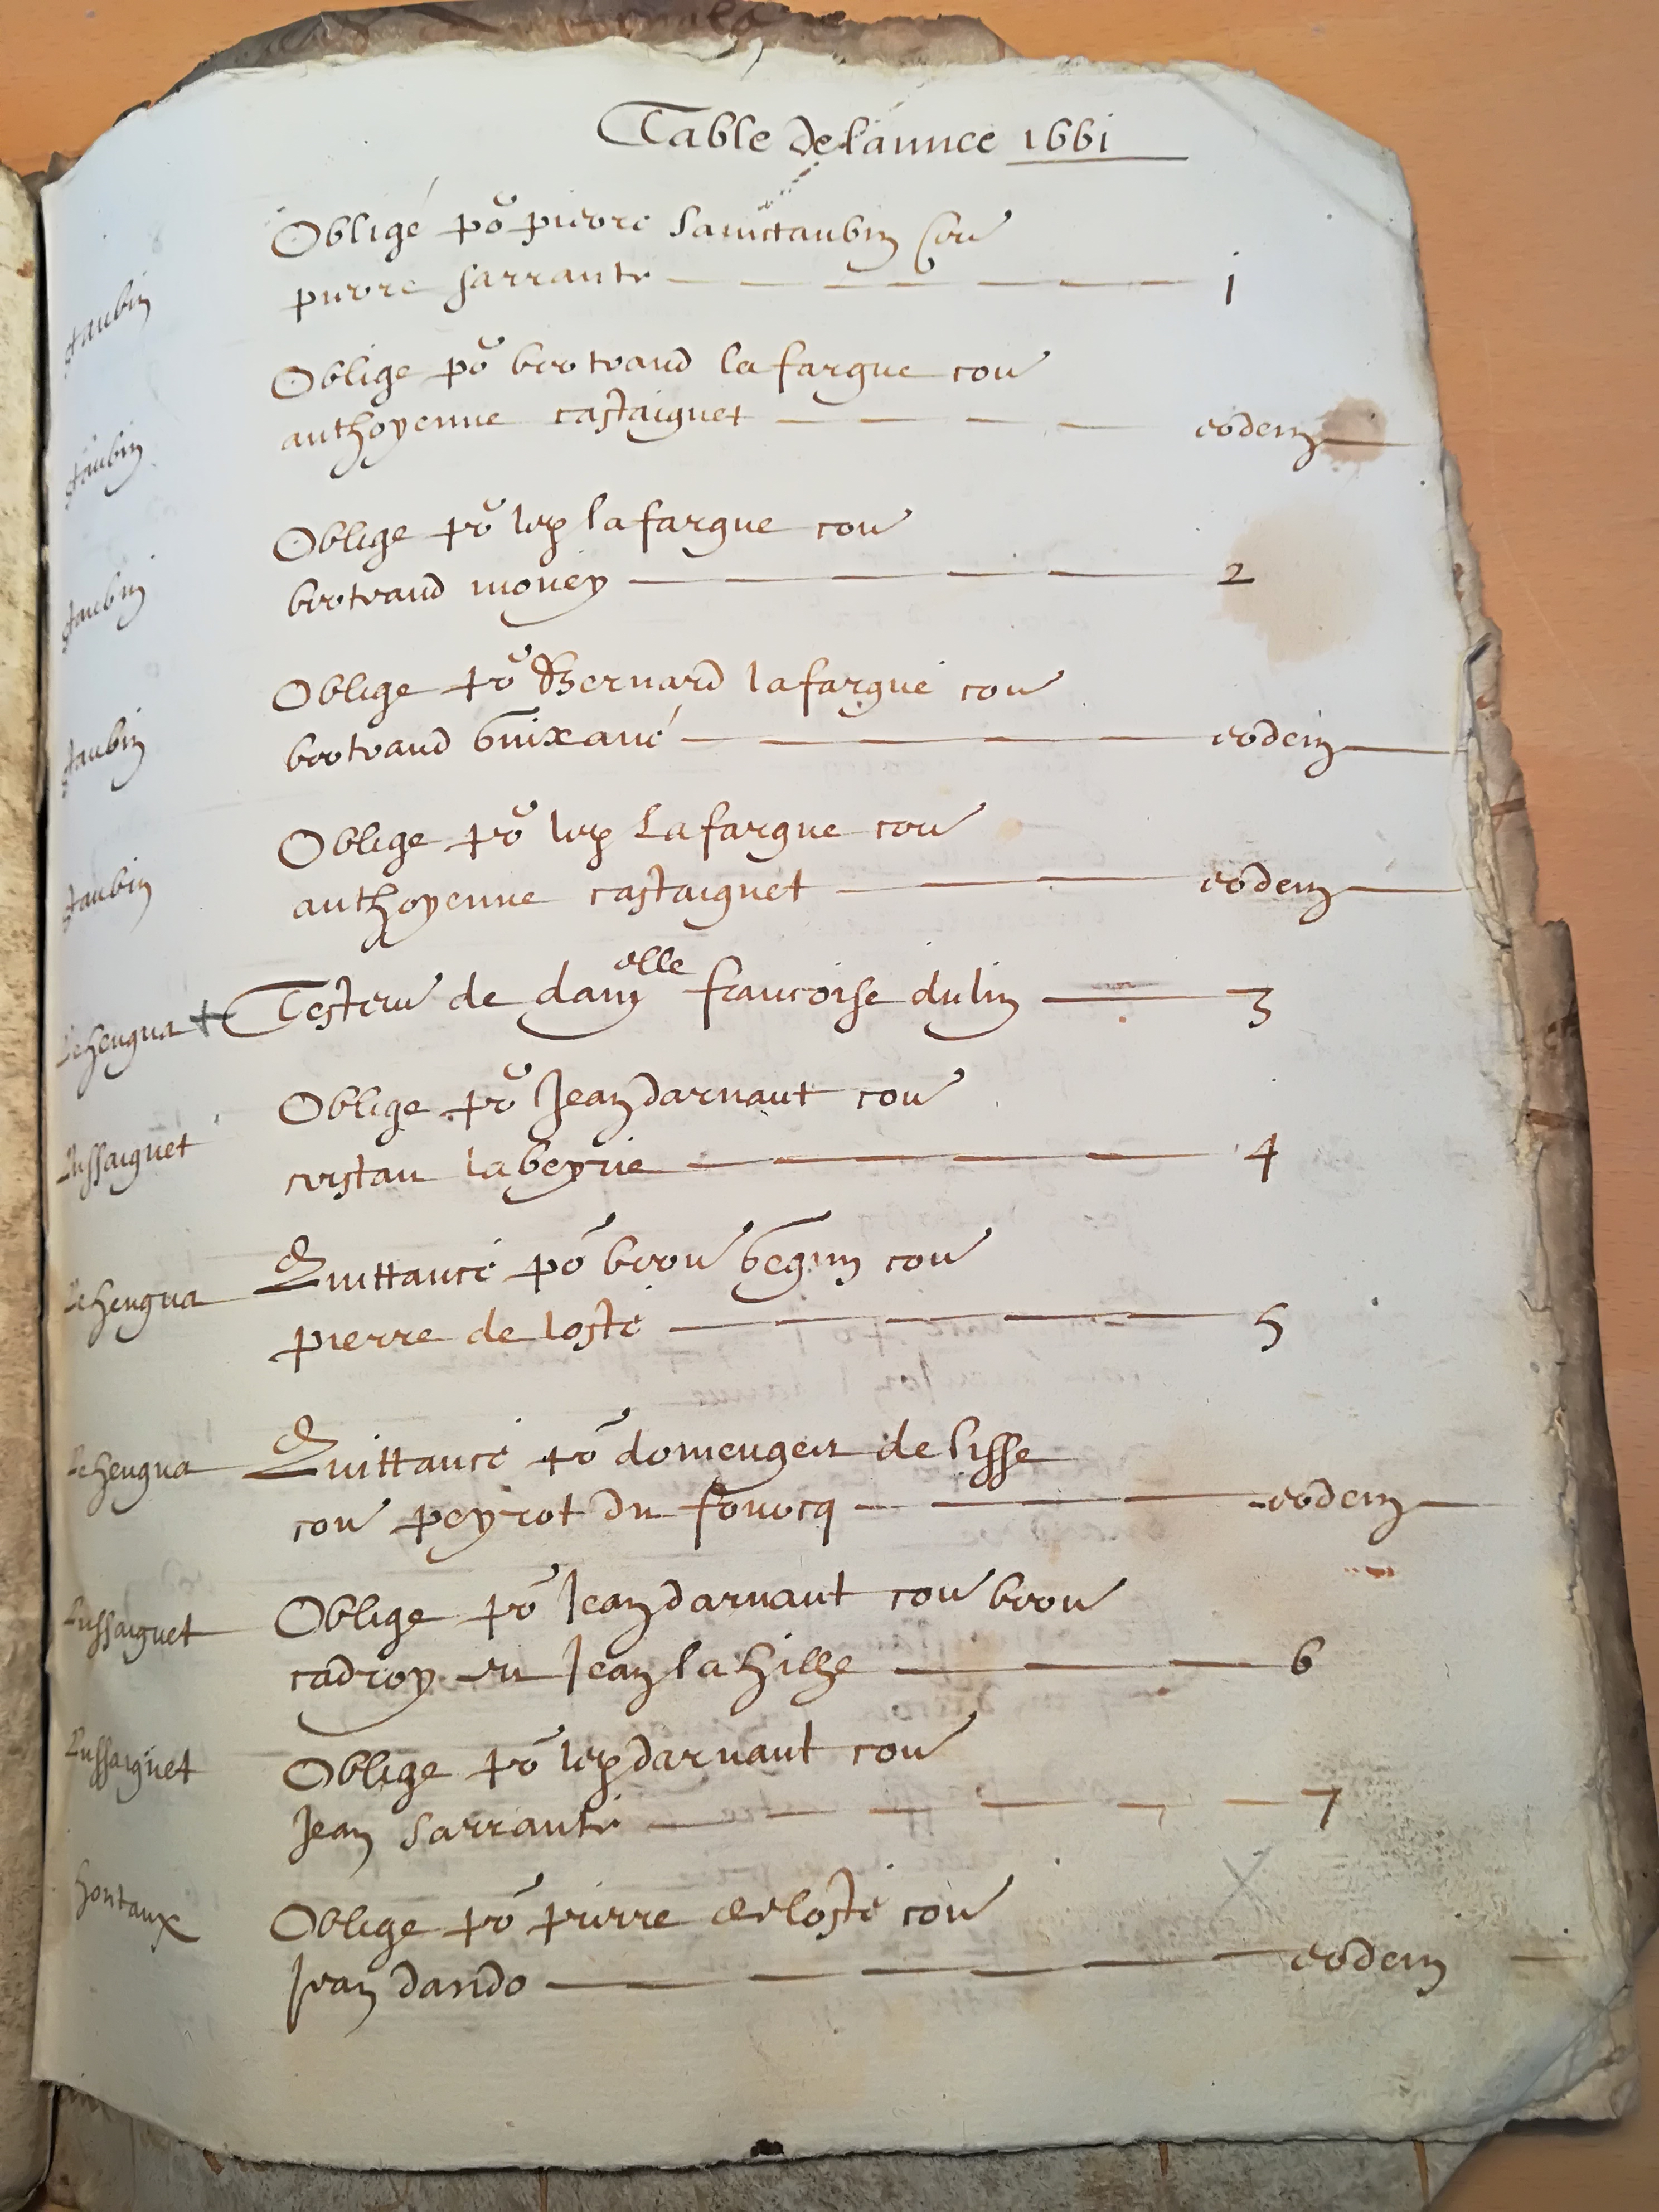 Table de lannee 1661
staubin
Oblige po pierre sainctaubin con
pierre sarraute 1
staubin
Oblige po bertrand lafargue con
anthoyenne castaignet eodem
staubin
Oblige po lafargue con
bertrand money 2
staubin
Oblige po Bernard lafargue con
bertrand eodem
staubin
Oblige po Lafargue con
anthoyenne castaignet eodem
Lehengua + Testem de dam elle francoise dulin 3
Lussaignet
Oblige po Jean darnaut con
cristau labeyrie 4
Lehengua
Quittance po begun con
pierre de loste 5
Lehengua
Quittance po domengein de lisse
con peyrot du fourcq eodem
Lussaignet
Oblige po Jean darnaut con
cadroy et Jean lahille 6
Lussaignet
Oblige po darnaut con
Jean sarraute 7
hontaux
Oblige po pierre deloste con
Jean dando eodem